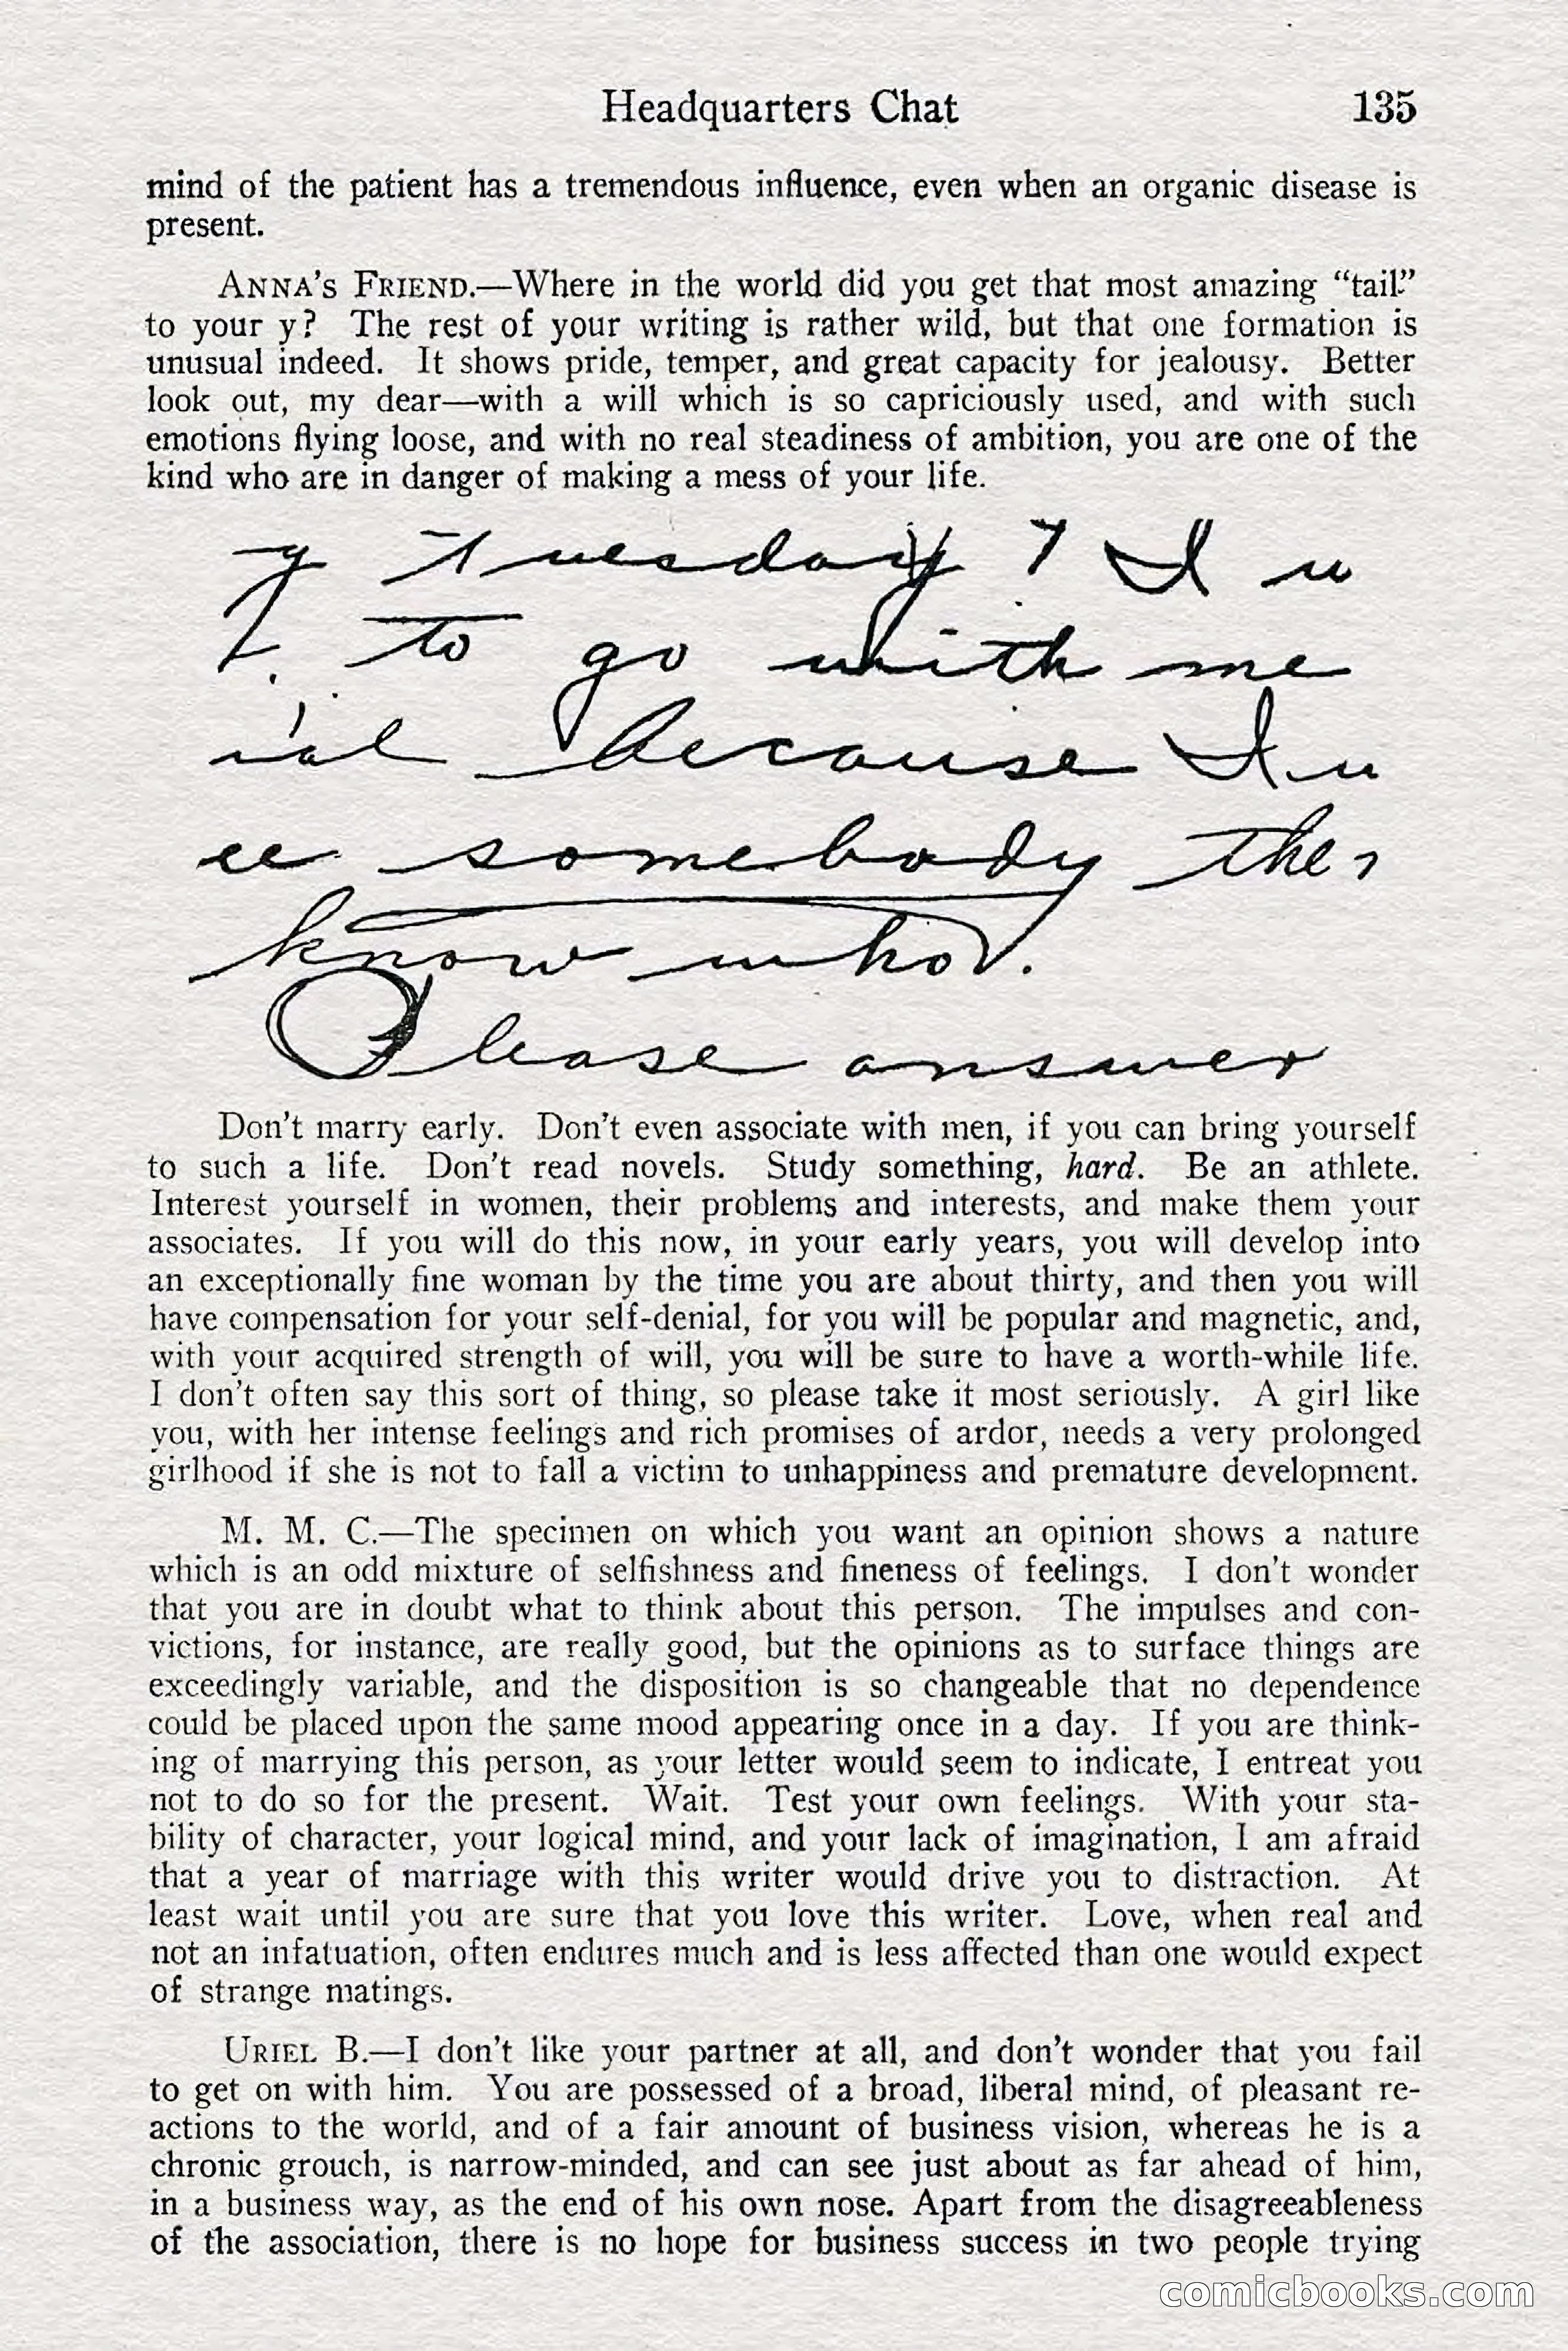 Headquarters Chat 135
mind of the patient has a tremendous influence, even when an organic disease is
present.
ANNA'S FRIEND.—Where in the world did you get that most amazing “tail”
to your y? The rest of your writing is rather wild, but that one formation is
unusual indeed. It shows pride, temper, and great capacity for jealousy. Better
look out, my dear—with a will which is so capriciously used, and with such
emotions flying loose, and with no real steadiness of ambition, you are one of the
kind who are in danger of making a mess of your life.
y Tuesday? I w
t. to go with me
ial because I w
ee somebody the
know who.
Please answer
Don't marry early. Don't even associate with men, if you can bring yourself
to such a life. Don't read novels. Study something, hard. Be an athlete.
Interest yourself in women, their problems and interests, and make them your
associates. If you will do this now, in your early years, you will develop into
an exceptionally fine woman by the time you are about thirty, and then you will
have compensation for your self-denial, for you will be popular and magnetic, and,
with your acquired strength of will, you will be sure to have a worth-while life.
I don't often say this sort of thing, so please take it most seriously. A girl like
you, with her intense feelings and rich promises of ardor, needs a very prolonged
girlhood if she is not to fall a victim to unhappiness and premature development.
M. M. C.—The specimen on which you want an opinion shows a nature
which is an odd mixture of selfishness and fineness of feelings. I don't wonder
that you are in doubt what to think about this person. The impulses and con-
victions, for instance, are really good, but the opinions as to surface things are
exceedingly variable, and the disposition is so changeable that no dependence
could be placed upon the same mood appearing once in a day. If you are think-
ing of marrying this person, as your letter would seem to indicate, I entreat you
not to do so for the present. Wait. Test your own feelings. With your sta-
bility of character, your logical mind, and your lack of imagination, I am afraid
that a year of marriage with this writer would drive you to distraction. At
least wait until you are sure that you love this writer. Love, when real and
not an infatuation, often endures much and is less affected than one would expect
of strange matings.
URIEL B.—I don't like your partner at all, and don't wonder that you fail
to get on with him. You are possessed of a broad, liberal mind, of pleasant re-
actions to the world, and of a fair amount of business vision, whereas he is a
chronic grouch, is narrow-minded, and can see just about as far ahead of him,
in a business way, as the end of his own nose. Apart from the disagreeableness
of the association, there is no hope for business success in two people trying
comicbooks.com